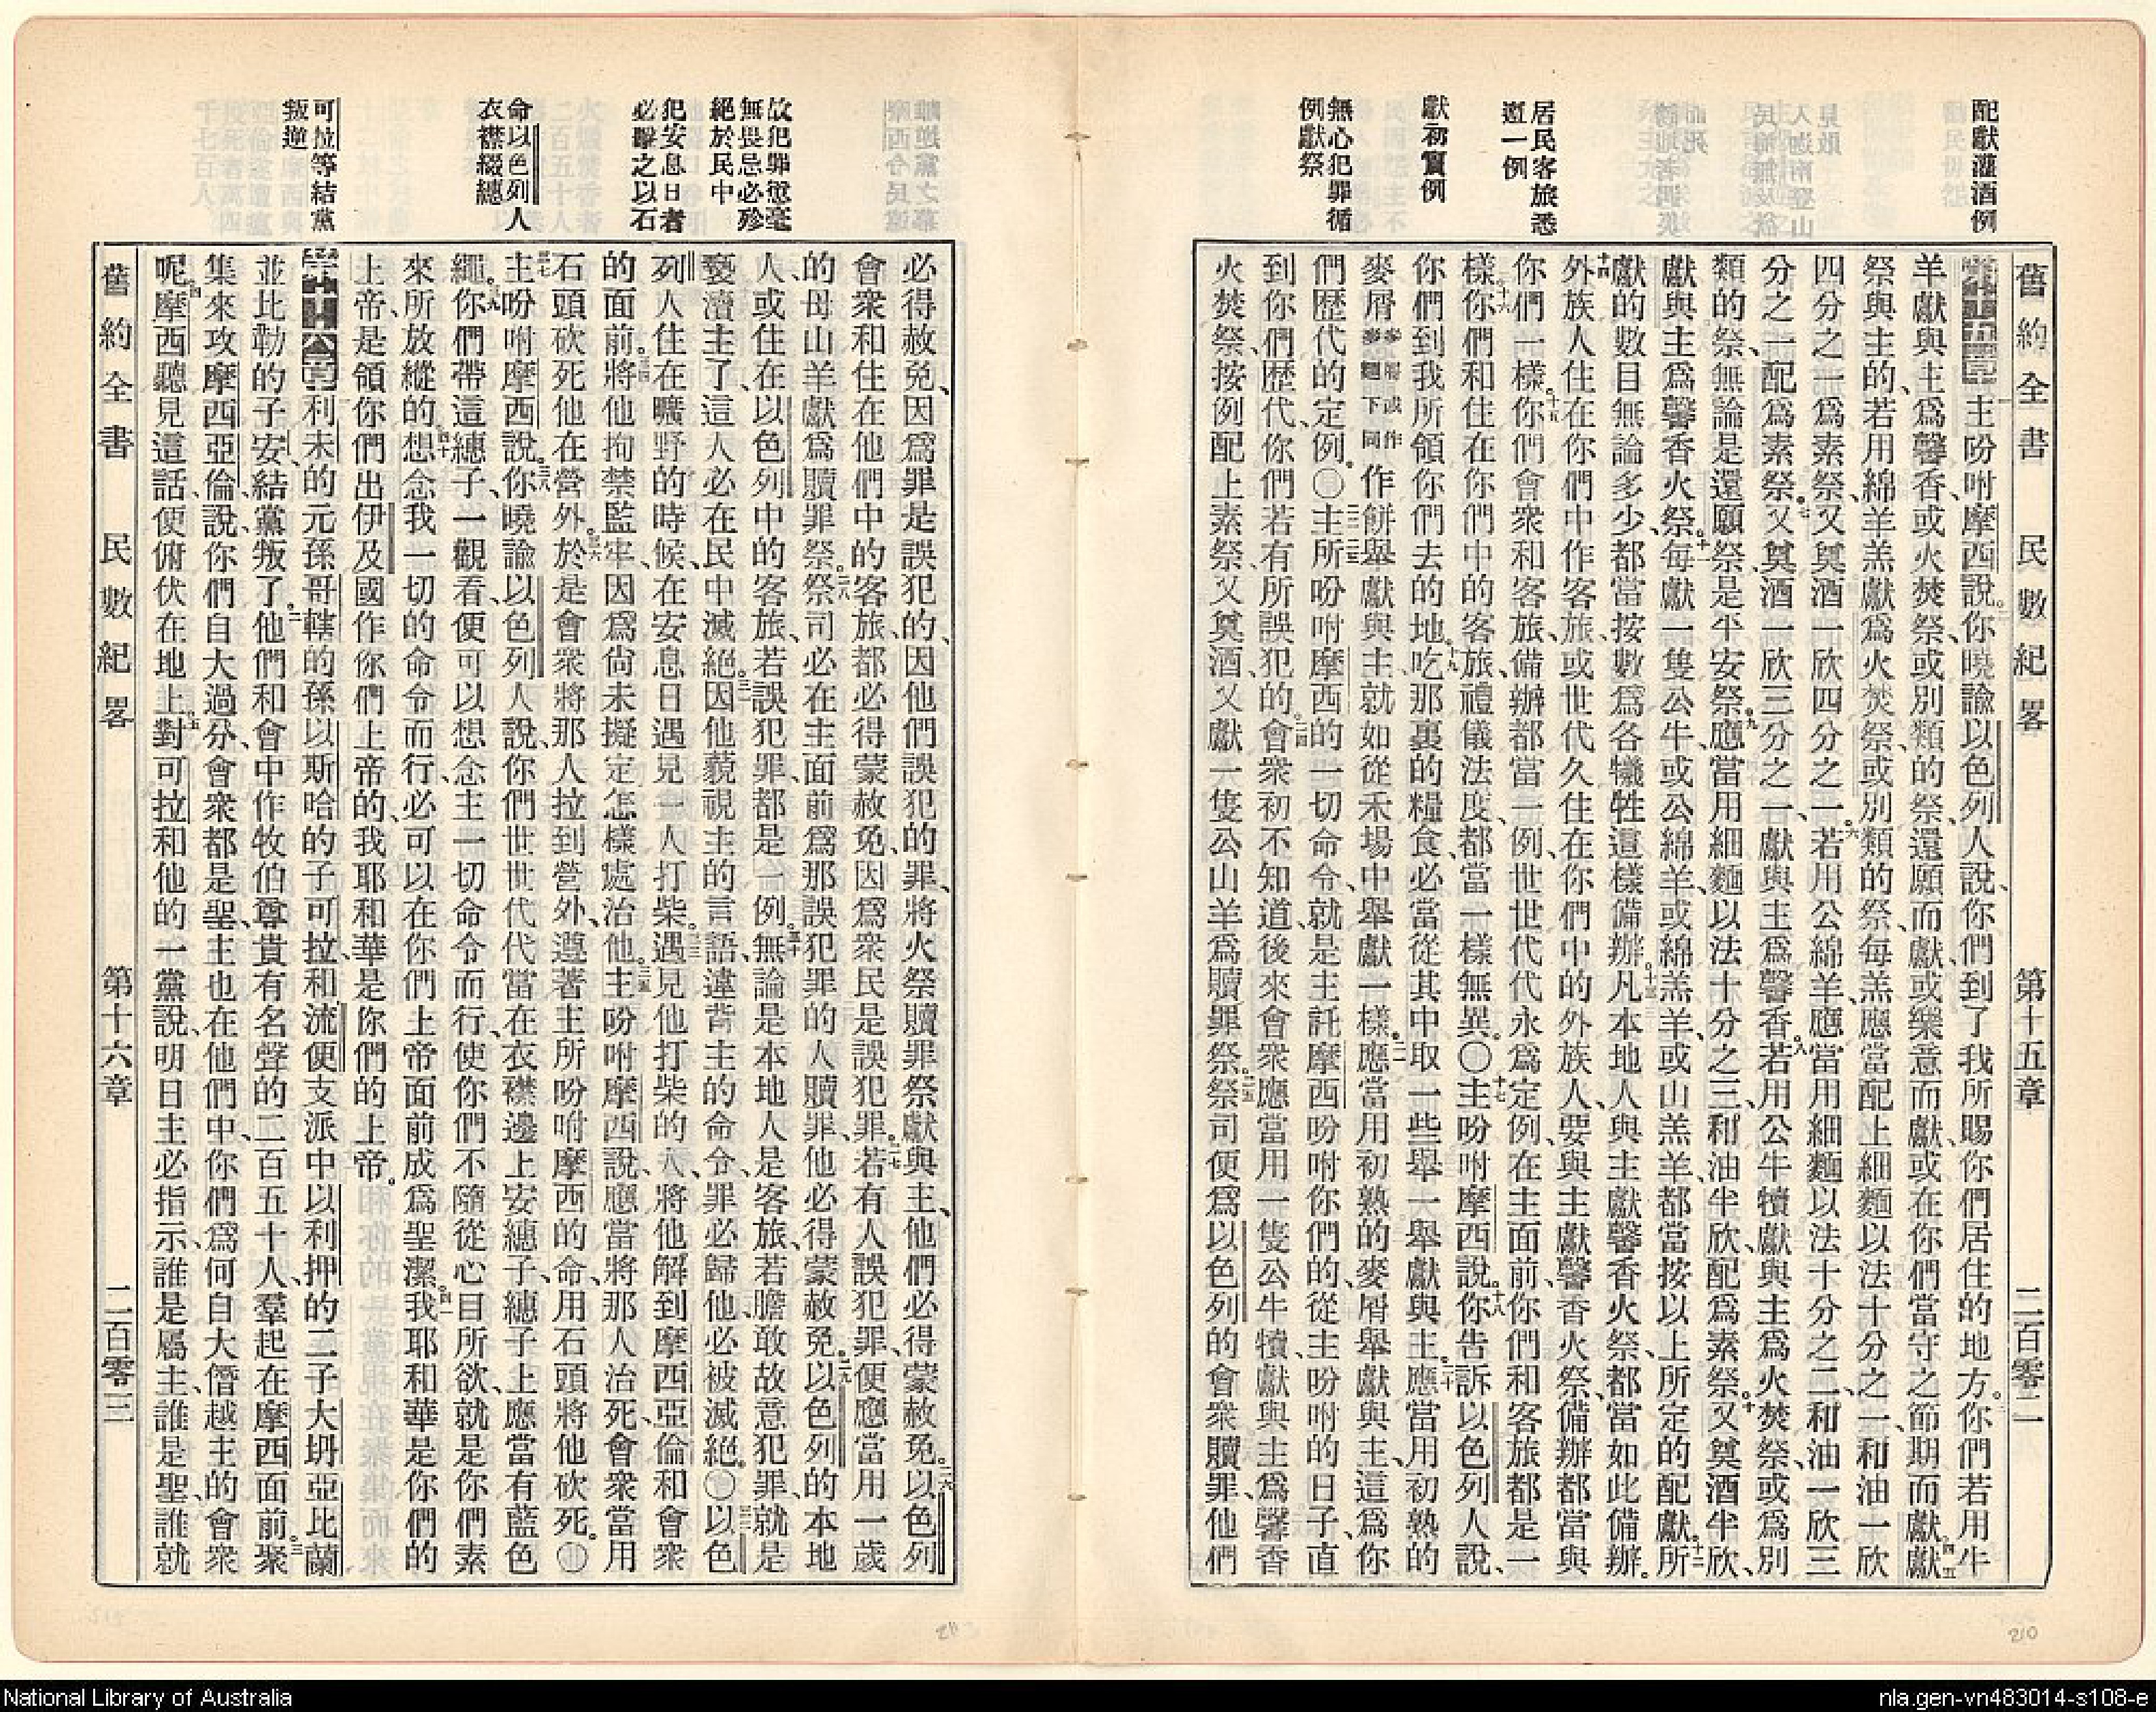 配獻灌酒例
居民客旅悉
遵一例
獻初實例
無心犯罪循
例獻祭
舊約全書 民數紀畧 第十五章 二百零二
第十五章 一主吩咐摩西說。二你曉諭以色列人說、你們到了我所賜你們居住的地方。三你們若用牛
羊獻與主、爲馨香、或火焚祭、或別類的祭、還願而獻、或樂意而獻、或在你們當守之節期而獻、四獻五
祭與主的、若用綿羊羔獻爲火焚祭、或別類的祭、每羔應當配上細麵以法十分之一、和油一欣
四分之一、爲素祭、又奠酒一欣四分之一。六若用公綿羊、應當用細麵以法十分之二、和油一欣三
分之一、配爲素祭。七又奠酒一欣三分之一、獻與主爲馨香。八若用公牛犢獻與主爲火焚祭、或爲別
類的祭、無論是還願祭、是平安祭。九應當用細麵以法十分之三、和油半欣、配爲素祭。十又奠酒半欣、
獻與主爲馨香火祭。十一每獻一隻公牛、或公綿羊、或綿羔羊、或山羔羊、都當按以上所定的配獻。十二所
獻的數目無論多少、都當按數爲各犧牲這樣備辦。十三凡本地人與主獻馨香火祭、都當如此備辦。
十四外族人住在你們中作客旅、或世代久住在你們中的外族人、要與主獻馨香火祭、備辦都當與
你們一樣。十五你們會衆和客旅、備辦都當一例、世世代代永爲定例、在主面前、你們和客旅都是一
樣。十六你們和住在你們中的客旅、禮儀法度、都當一樣無異。〇十七主吩咐摩西說。十八你告訴以色列人說、
你們到我所領你們去的地、十九吃那裏的糧食、必當從其中取一些舉一舉獻與主。二十應當用初熟的
麥屑麥屑或作麥麵下同作餅舉獻與主、就如從禾場中舉獻一樣。二一應當用初熟的麥屑舉獻與主、這爲你
們歷代的定例。〇二二二三主所吩咐摩西的一切命令、就是主託摩西吩咐你們的、從主吩咐的日子、直
到你們歷代、你們若有所誤犯的。二四會衆初不知道、後來會衆應當用一隻公牛犢、獻與主爲馨香
火焚祭、按例配上素祭、又奠酒、又獻一隻公山羊爲贖罪祭。二五祭司便爲以色列的會衆贖罪、他們
故犯罪愆毫
無畏忌必殄
絕於民中
犯安息日者
必擊之以石
命以色列人
衣襟綴繐
可拉等結黨
叛逆
必得赦免、因爲罪是誤犯的、因他們誤犯的罪、將火祭贖罪祭獻與主、他們必得蒙赦免。二六以色列
會衆和住在他們中的客旅、都必得蒙赦免、因爲衆民是誤犯罪。二七若有人誤犯罪、便應當用一歲
的母山羊獻爲贖罪祭。二八祭司必在主面前爲那誤犯罪的人贖罪、他必得蒙赦免。二九以色列的本地
人、或住在以色列中的客旅、若誤犯罪、都是一例。三十無論是本地人、是客旅、若膽敢故意犯罪、就是
褻瀆主了、這人必在民中滅絕。三一因他藐視主的言語、違背主的命令、罪必歸他、必被滅絕。〇三二以色
列人住在曠野的時候、在安息日遇見一人打柴。三三遇見他打柴的人、將他解到摩西亞倫和會衆
的面前。三四將他拘禁監牢、因爲尙未擬定怎樣處治他。三五主吩咐摩西說、應當將那人治死、會衆當用
石頭砍死他在營外。三六於是會衆將那人拉到營外、遵著主所吩咐摩西的命、用石頭將他砍死。〇
三七主吩咐摩西說。三八你曉諭以色列人說、你們世世代代當在衣襟邊上安繐子、繐子上應當有藍色
繩。三九你們帶這繐子、一觀看、便可以想念主一切命令而行、使你們不隨從心目所欲、就是你們素
來所放縱的。四十想念我一切的命令而行、必可以在你們上帝面前成爲聖潔。四一我耶和華是你們的
上帝、是領你們出伊及國作你們上帝的、我耶和華是你們的上帝。
第十六章 利未的元孫哥轄的孫以斯哈的子可拉、和流便支派中以利押的二子大坍亞比蘭
並比勒的子安、結黨叛了。二他們和會中作牧伯尊貴有名聲的二百五十人、羣起在摩西面前。三聚
集來攻摩西亞倫、說、你們自大過分、會衆都是聖、主也在他們中、你們爲何自大僭越主的會衆
呢。四摩西聽見這話、便俯伏在地上。五對可拉和他的一黨說、明日主必指示、誰是屬主、誰是聖、誰就
舊約全書 民數紀畧 第十六章 二百零三
211
210
National Library of Australia
nla.gen-vn483014-s108-e